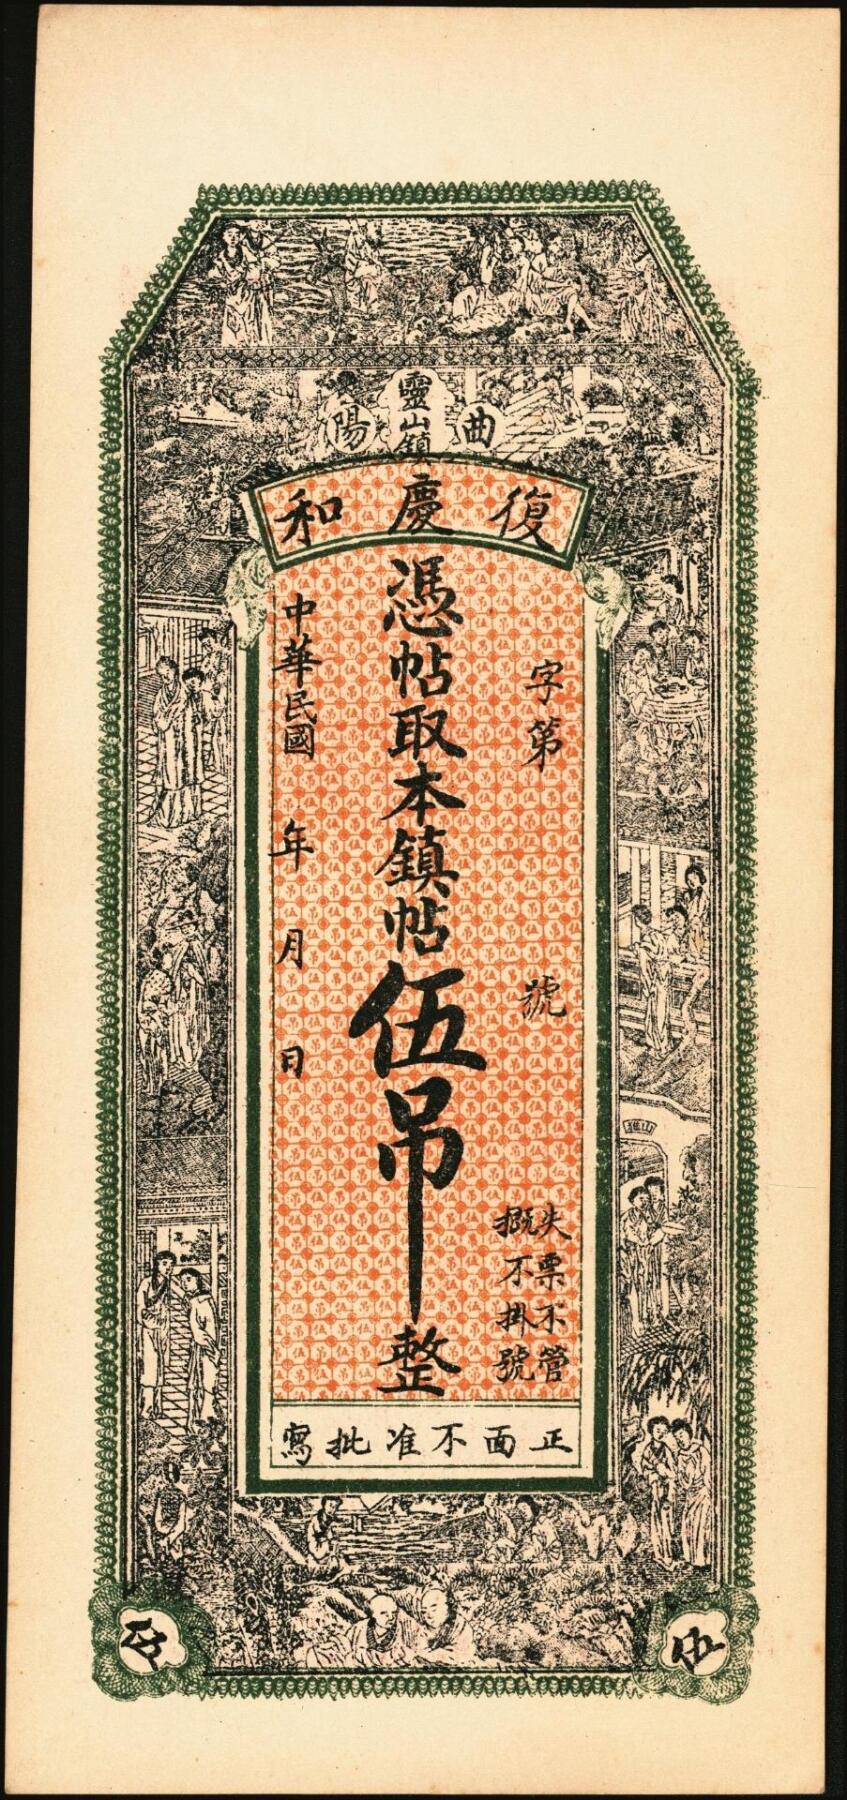 曲陽
靈山鎮
復慶和
字第 號
失票不管
概不掛號
憑帖取本鎮帖伍吊整
中華民國 年 月 日
正面不准批寫
伍
伍